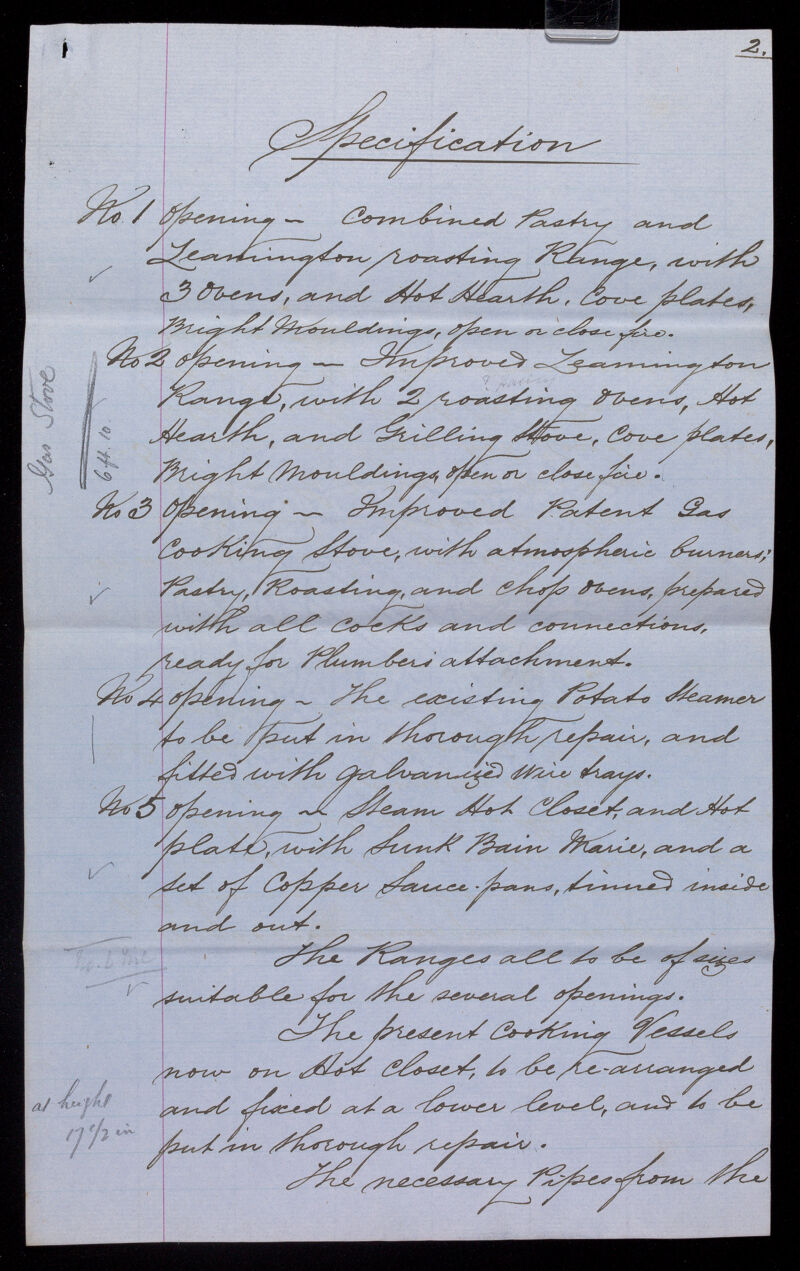 2.
Specification
No. 1 opening – Combined Pastry and
Leamington roasting Range, with
3 Ovens, and Hot Hearth. Cove plates,
Bright Mouldings, open or close fire.
No 2 opening – Improved Leamington
Range, with 2 roasting Ovens, Hot
Hearth, and Grilling Stove, Cove plates,
Bright Mouldings, open or close fire.
Gas Stove
6 ft. 10.
No 3 opening – Improved Patent Gas
Cooking Stove, with atmospheric burners;
Pastry, Roasting, and Chop Ovens, prepared
with all Cocks and connections,
ready for Plumbers attachment.
No 4 opening – The existing Potato Steamer
to be put in thorough repair, and
fitted with galvanized wire trays.
No 5 opening – Steam Hot Closet, and Hot
plate, with Sunk Bain Marie, and a
set of Copper Sauce-pans, tinned inside
and out.
The Ranges all to be of sizes
suitable for the several openings.
The present Cooking Vessels
now on Hot Closet, to be re-arranged
and fixed at a lower level, and to be
put in thorough repair.
at height
17 1/2 in
The necessary Pipes from the